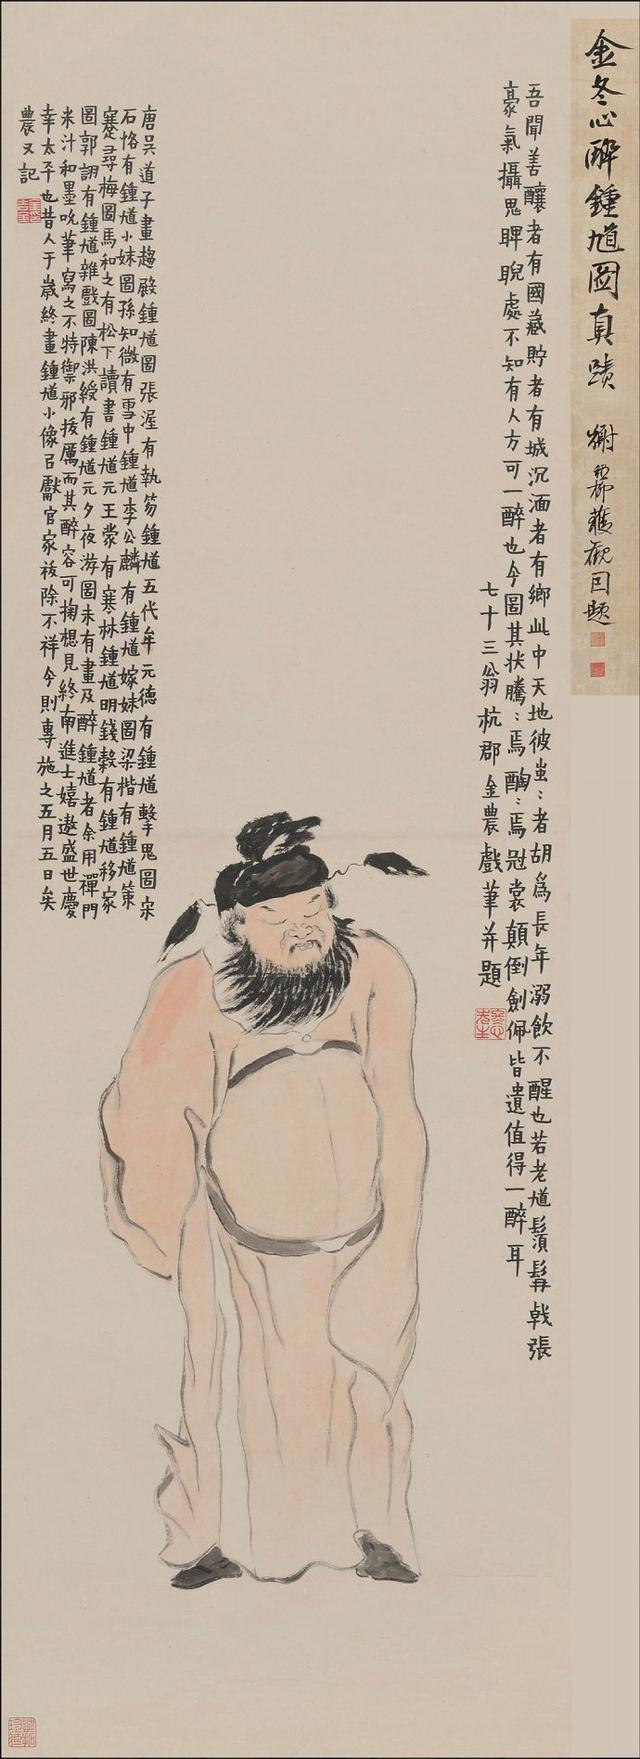 金冬心醉鍾馗圖真蹟
吾聞善釀者有國藏貯者有城沉湎者有鄉此中天地彼蚩〻者胡為長年溺飲不醒也若老馗鬚髯戟張
豪氣攝鬼睥睨處不知有人方可一醉也今圖其狀騰〻焉酶〻焉冠裳顛倒劍佩皆遺值得一醉耳
七十三翁杭郡金農戲筆并題
唐吳道子畫趨殿鍾馗圖張渥有執笏鍾馗五代牟元德有鍾馗擊鬼圖宋
石恪有鍾馗小妹圖孫知微有雪中鍾馗李公麟有鍾馗嫁妹圖梁楷有鍾馗策
蹇尋梅圖馬和之有松下讀書鍾馗元王蒙有寒林鍾馗明錢穀有鍾馗移家
圖郭詡有鍾馗雜戲圖陳洪綬有鍾馗元夕夜游圖未有畫及醉鍾馗者余用禪門
米汁和墨吮筆寫之不特禦邪拔厲而其醉容可掬想見終南進士嬉遨盛世慶
幸太平也昔人于歲終畫鍾馗小像召獻官家祓除不祥今則專施之五月五日矣
農又記